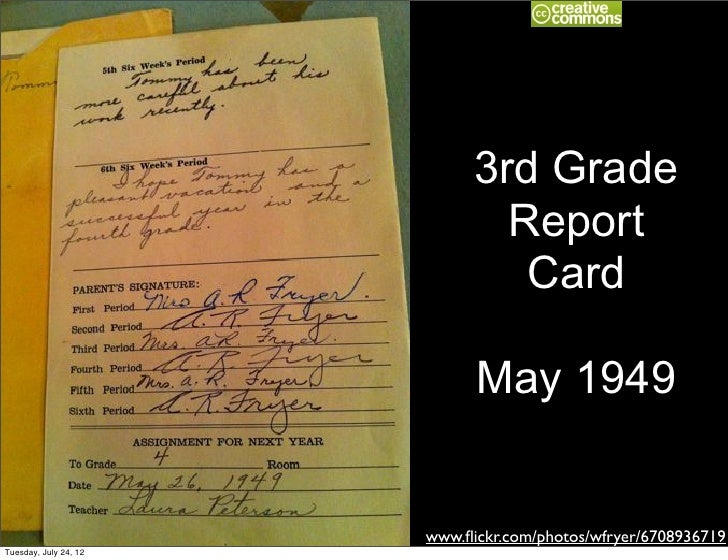 creative
commons
Tommy
5th Six Week's Period
Tommy has been
more careful about his
work recently.
6th Six Week's Period
I hope Tommy has a
pleasant vacation and a
successful year in the
fourth grade.
PARENT'S SIGNATURE:
First Period Mrs A. R. Fryer.
Second Period A. R. Fryer
Third Period Mrs. A.R. Fryer.
Fourth Period A. R. Fryer
Fifth Period Mrs. A. R. Fryer
Sixth Period A. R. Fryer
ASSIGNMENT FOR NEXT YEAR
To Grade 4 Room
Date May 26, 1949
Teacher Laura Peterson
3rd Grade
Report
Card
May 1949
www.flickr.com/photos/wfryer/6708936719
Tuesday, July 24, 12